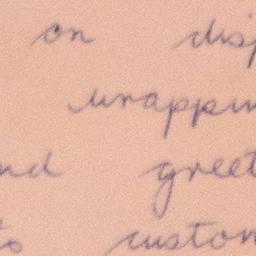 on disp
wrappin
nd greet
to custom